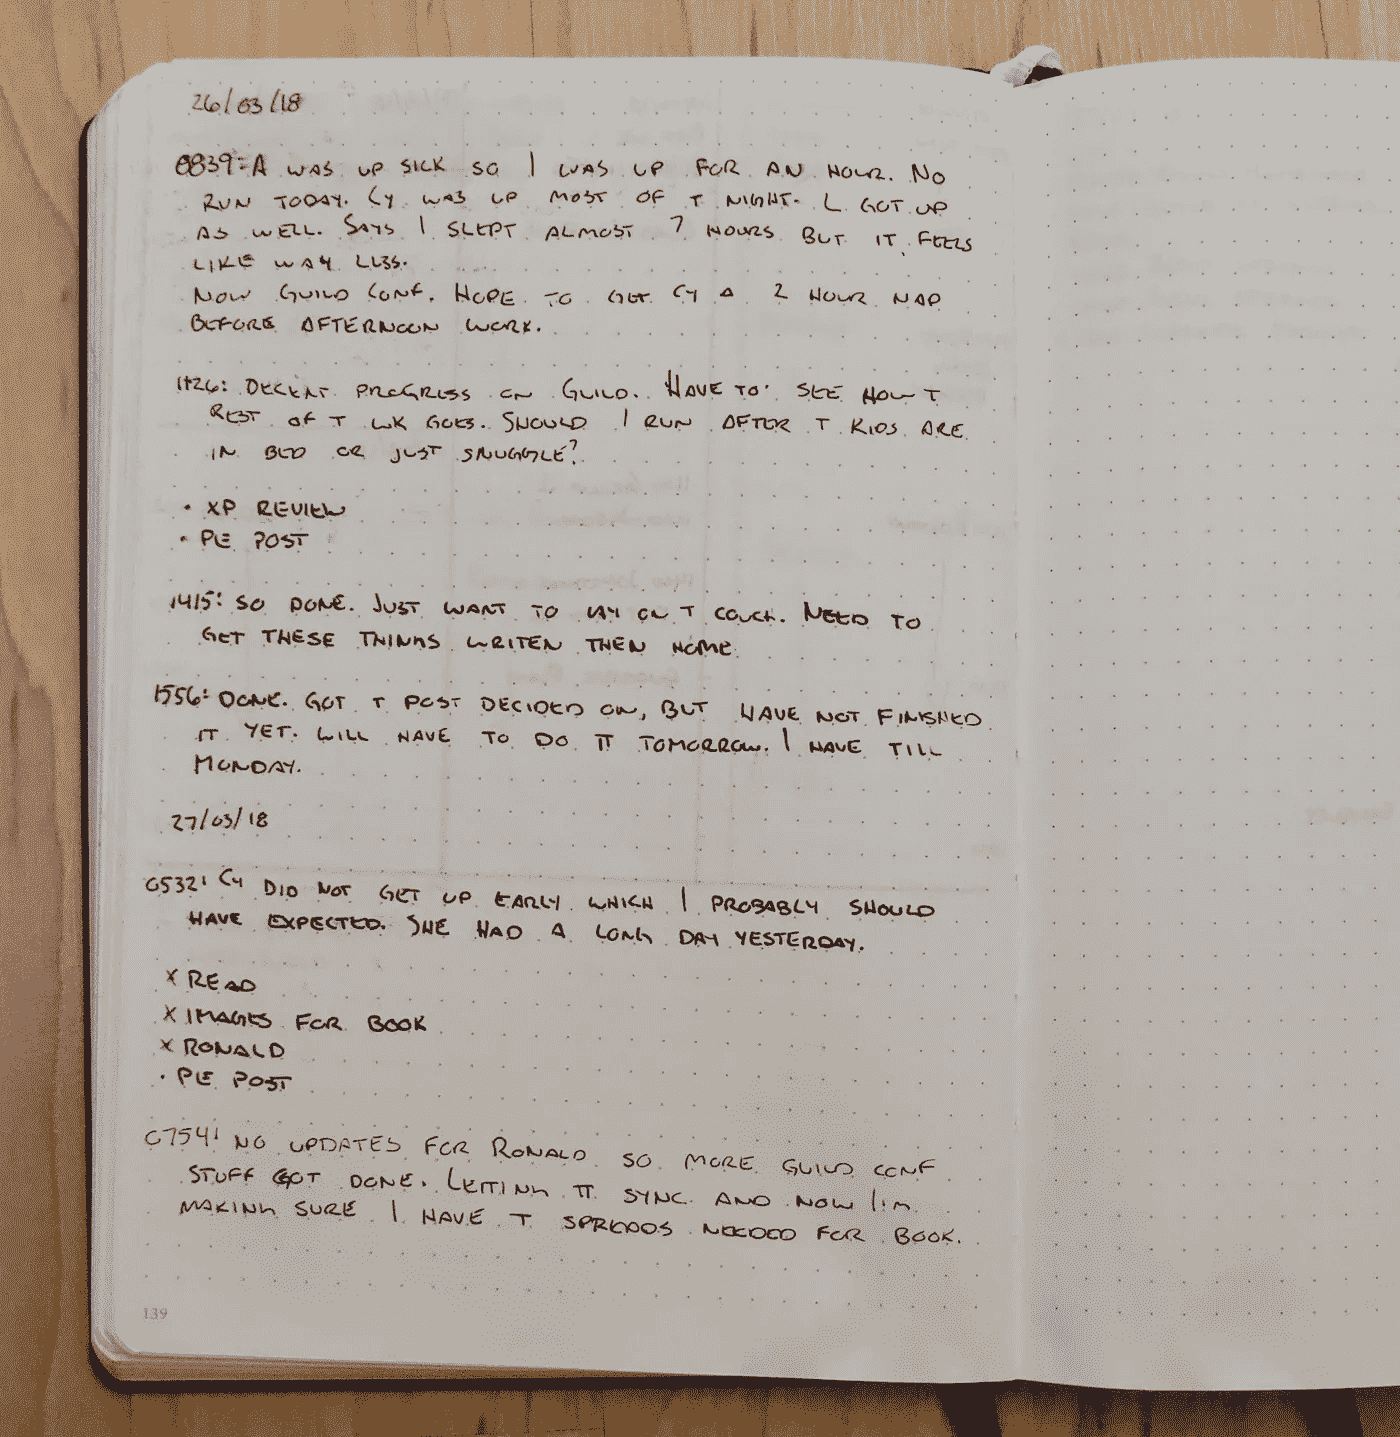 26/03/18
0839: A WAS UP SICK SO I WAS UP FOR AN HOUR. NO
RUN TODAY. CY WAS UP MOST OF T NIGHT. L GOT UP
AS WELL. SAYS I SLEPT ALMOST 7 HOURS BUT IT FEELS
LIKE WAY LESS.
NOW GUILD CONF. HOPE TO GET CY A 2 HOUR NAP
BEFORE AFTERNOON WORK.
1126: DECENT PROGRESS ON GUILD. HAVE TO SEE HOW T
REST OF T WK GOES. SHOULD I RUN AFTER T KIDS ARE
IN BED OR JUST SNUGGLE?
• XP REVIEW
• PE POST
1415: SO DONE. JUST WANT TO LAY ON T COUCH. NEED TO
GET THESE THINGS WRITEN THEN HOME.
1556: DONE. GOT T POST DECIDED ON, BUT HAVE NOT FINISHED
IT YET. WILL HAVE TO DO IT TOMORROW. I HAVE TILL
MONDAY.
27/03/18
0532: CY DID NOT GET UP EARLY WHICH I PROBABLY SHOULD
HAVE EXPECTED. SHE HAD A LONG DAY YESTERDAY.
X READ
X IMAGES FOR BOOK
X RONALD
• PE POST
0754: NO UPDATES FOR RONALD SO MORE GUILD CONF
STUFF GOT DONE. LETTING IT SYNC AND NOW I'M
MAKING SURE I HAVE T SPREADS NEEDED FOR BOOK.
139